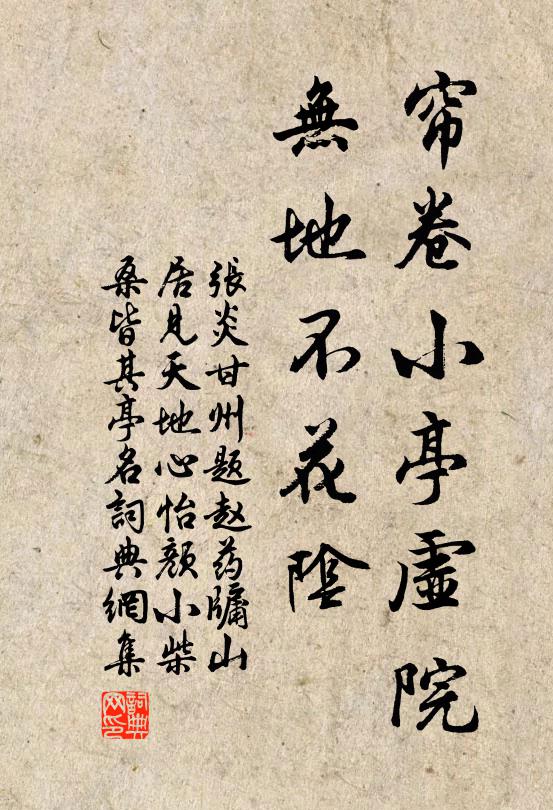 帘卷小亭虚院
無地不花陰
張炎甘州题赵药牖山
居見天地心怡颜小柴
桑皆其亭名詞典網集
詞典
网印